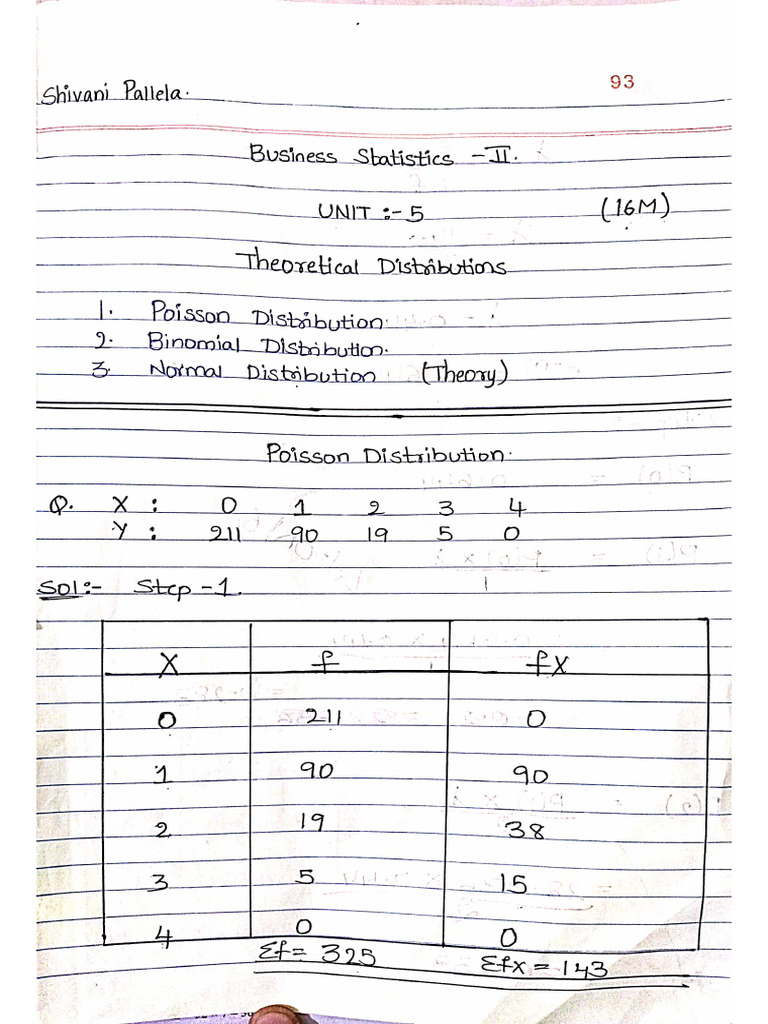 93
Shivani Pallela.
Business Statistics - II.
UNIT :- 5 (16M)
Theoretical Distributions
1. Poisson Distribution.
2. Binomial Distribution.
3. Normal Distribution (Theory)
Poisson Distribution.
Q. X : 0 1 2 3 4
Y : 211 90 19 5 0
Sol :- Step - 1.
X f fX
0 211 0
1 90 90
2 19 38
3 5 15
4 0 0
Σf = 325 Σfx = 143